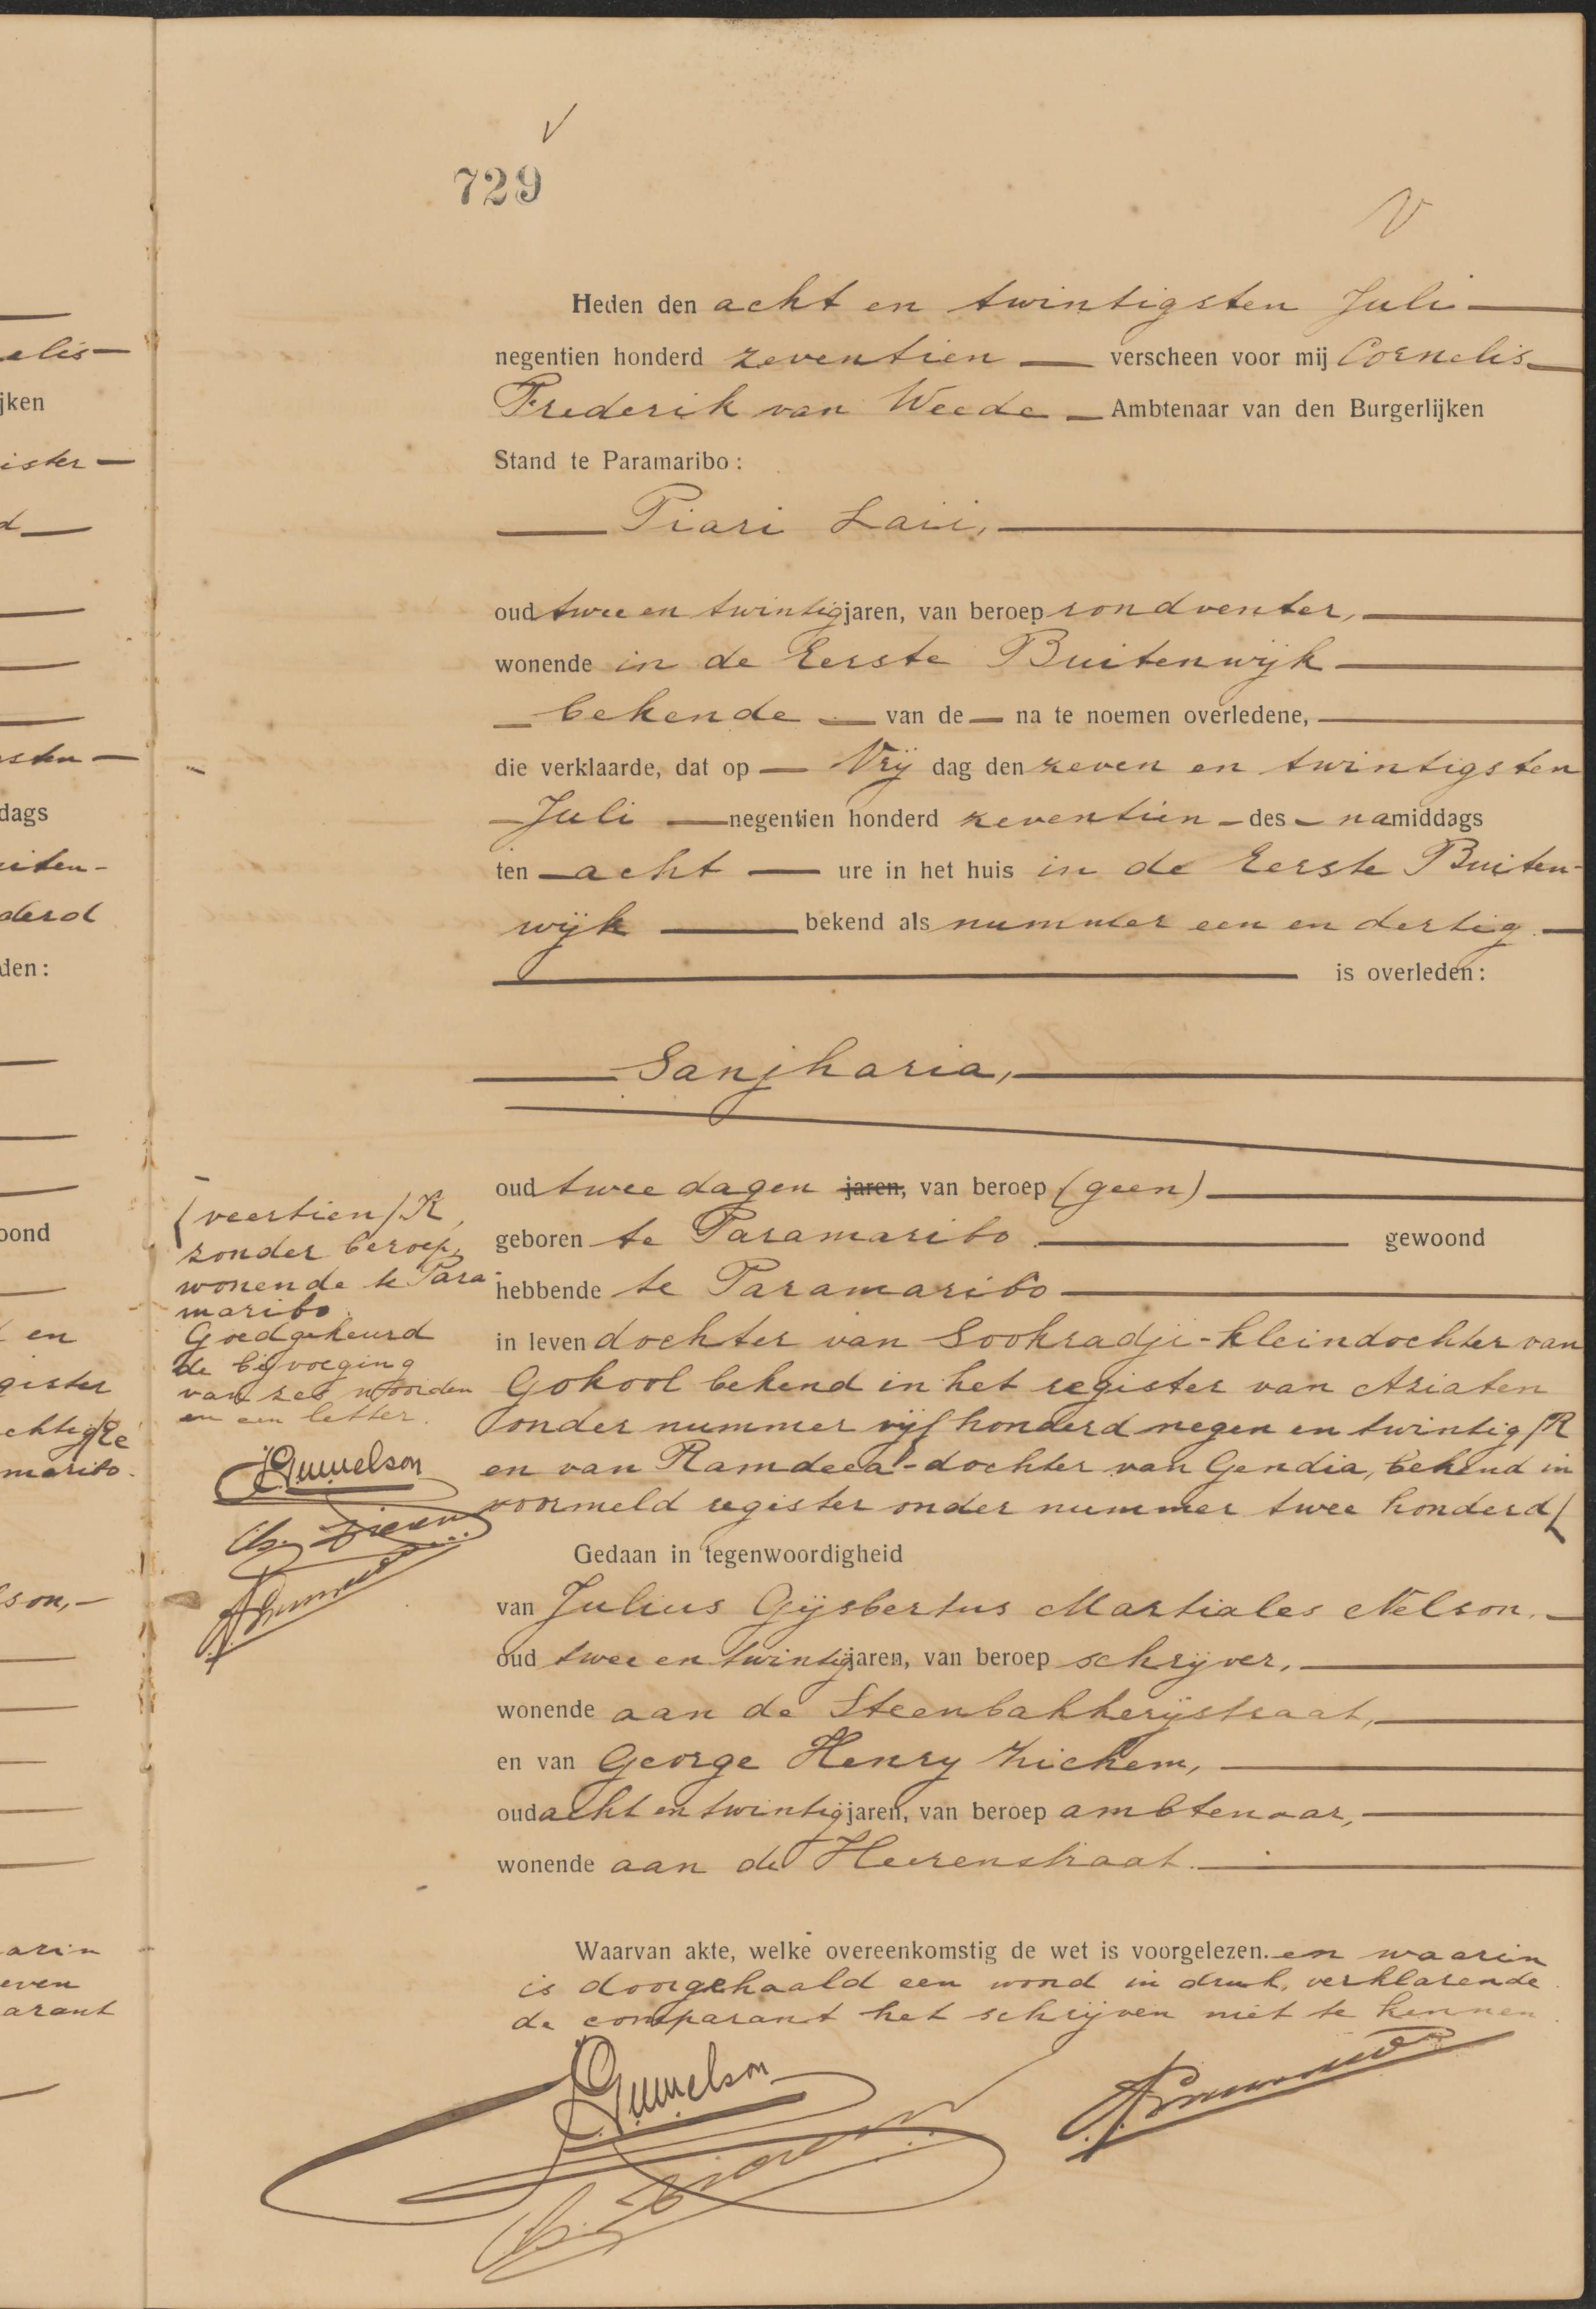 729
Heden den acht en twintigsten Juli
negentien honderd zeventien verscheen voor mij Cornelis
Frederik van Weede Ambtenaar van den Burgerlijken
Stand te Paramaribo:
Piari Laii,
oud twee en twintig jaren, van beroep rondventer,
wonende in de Eerste Buitenwijk
bekende van de na te noemen overledene,
die verklaarde, dat op Vrij dag den zeven en twintigsten
Juli negentien honderd zeventien des namiddags
ten acht ure in het huis in de Eerste Buiten-
wijk bekend als nummer een en dertig
is overleden:
Sanjharia,
oud twee dagen jaren, van beroep (geen)
geboren te Paramaribo gewoond
hebbende te Paramaribo
in leven dochter van Sookradji - kleindochter van
Gokool bekend in het register van Aziaten
onder nummer vijf honderd negen en twintig /R
en van Ramdeea - dochter van Gendia, bekend in
voormeld register onder nummer twee honderd
(veertien /R,
zonder beroep,
wonende te Para-
maribo.
Goedgekeurd
de bijvoeging
van zes woorden
en een letter.
JGMNelson
Gedaan in tegenwoordigheid
van Julius Gijsbertus Martiales Nelson.
oud twee en twintig jaren, van beroep schrijver,
wonende aan de Steenbakkerijstraat,
en van George Henry Zichem,
oud acht en twintig jaren, van beroep ambtenaar,
wonende aan de Heerenstraat.
Waarvan akte, welke overeenkomstig de wet is voorgelezen en waarin
is doorgehaald een woord in druk, verklarende
de comparant het schrijven niet te kennen.
JGMNelson
elis
jken
ister
d
sten
dags
uiten-
derd
den:
oond
en
gister
chtig
maribo.
son,
arin
even
arant